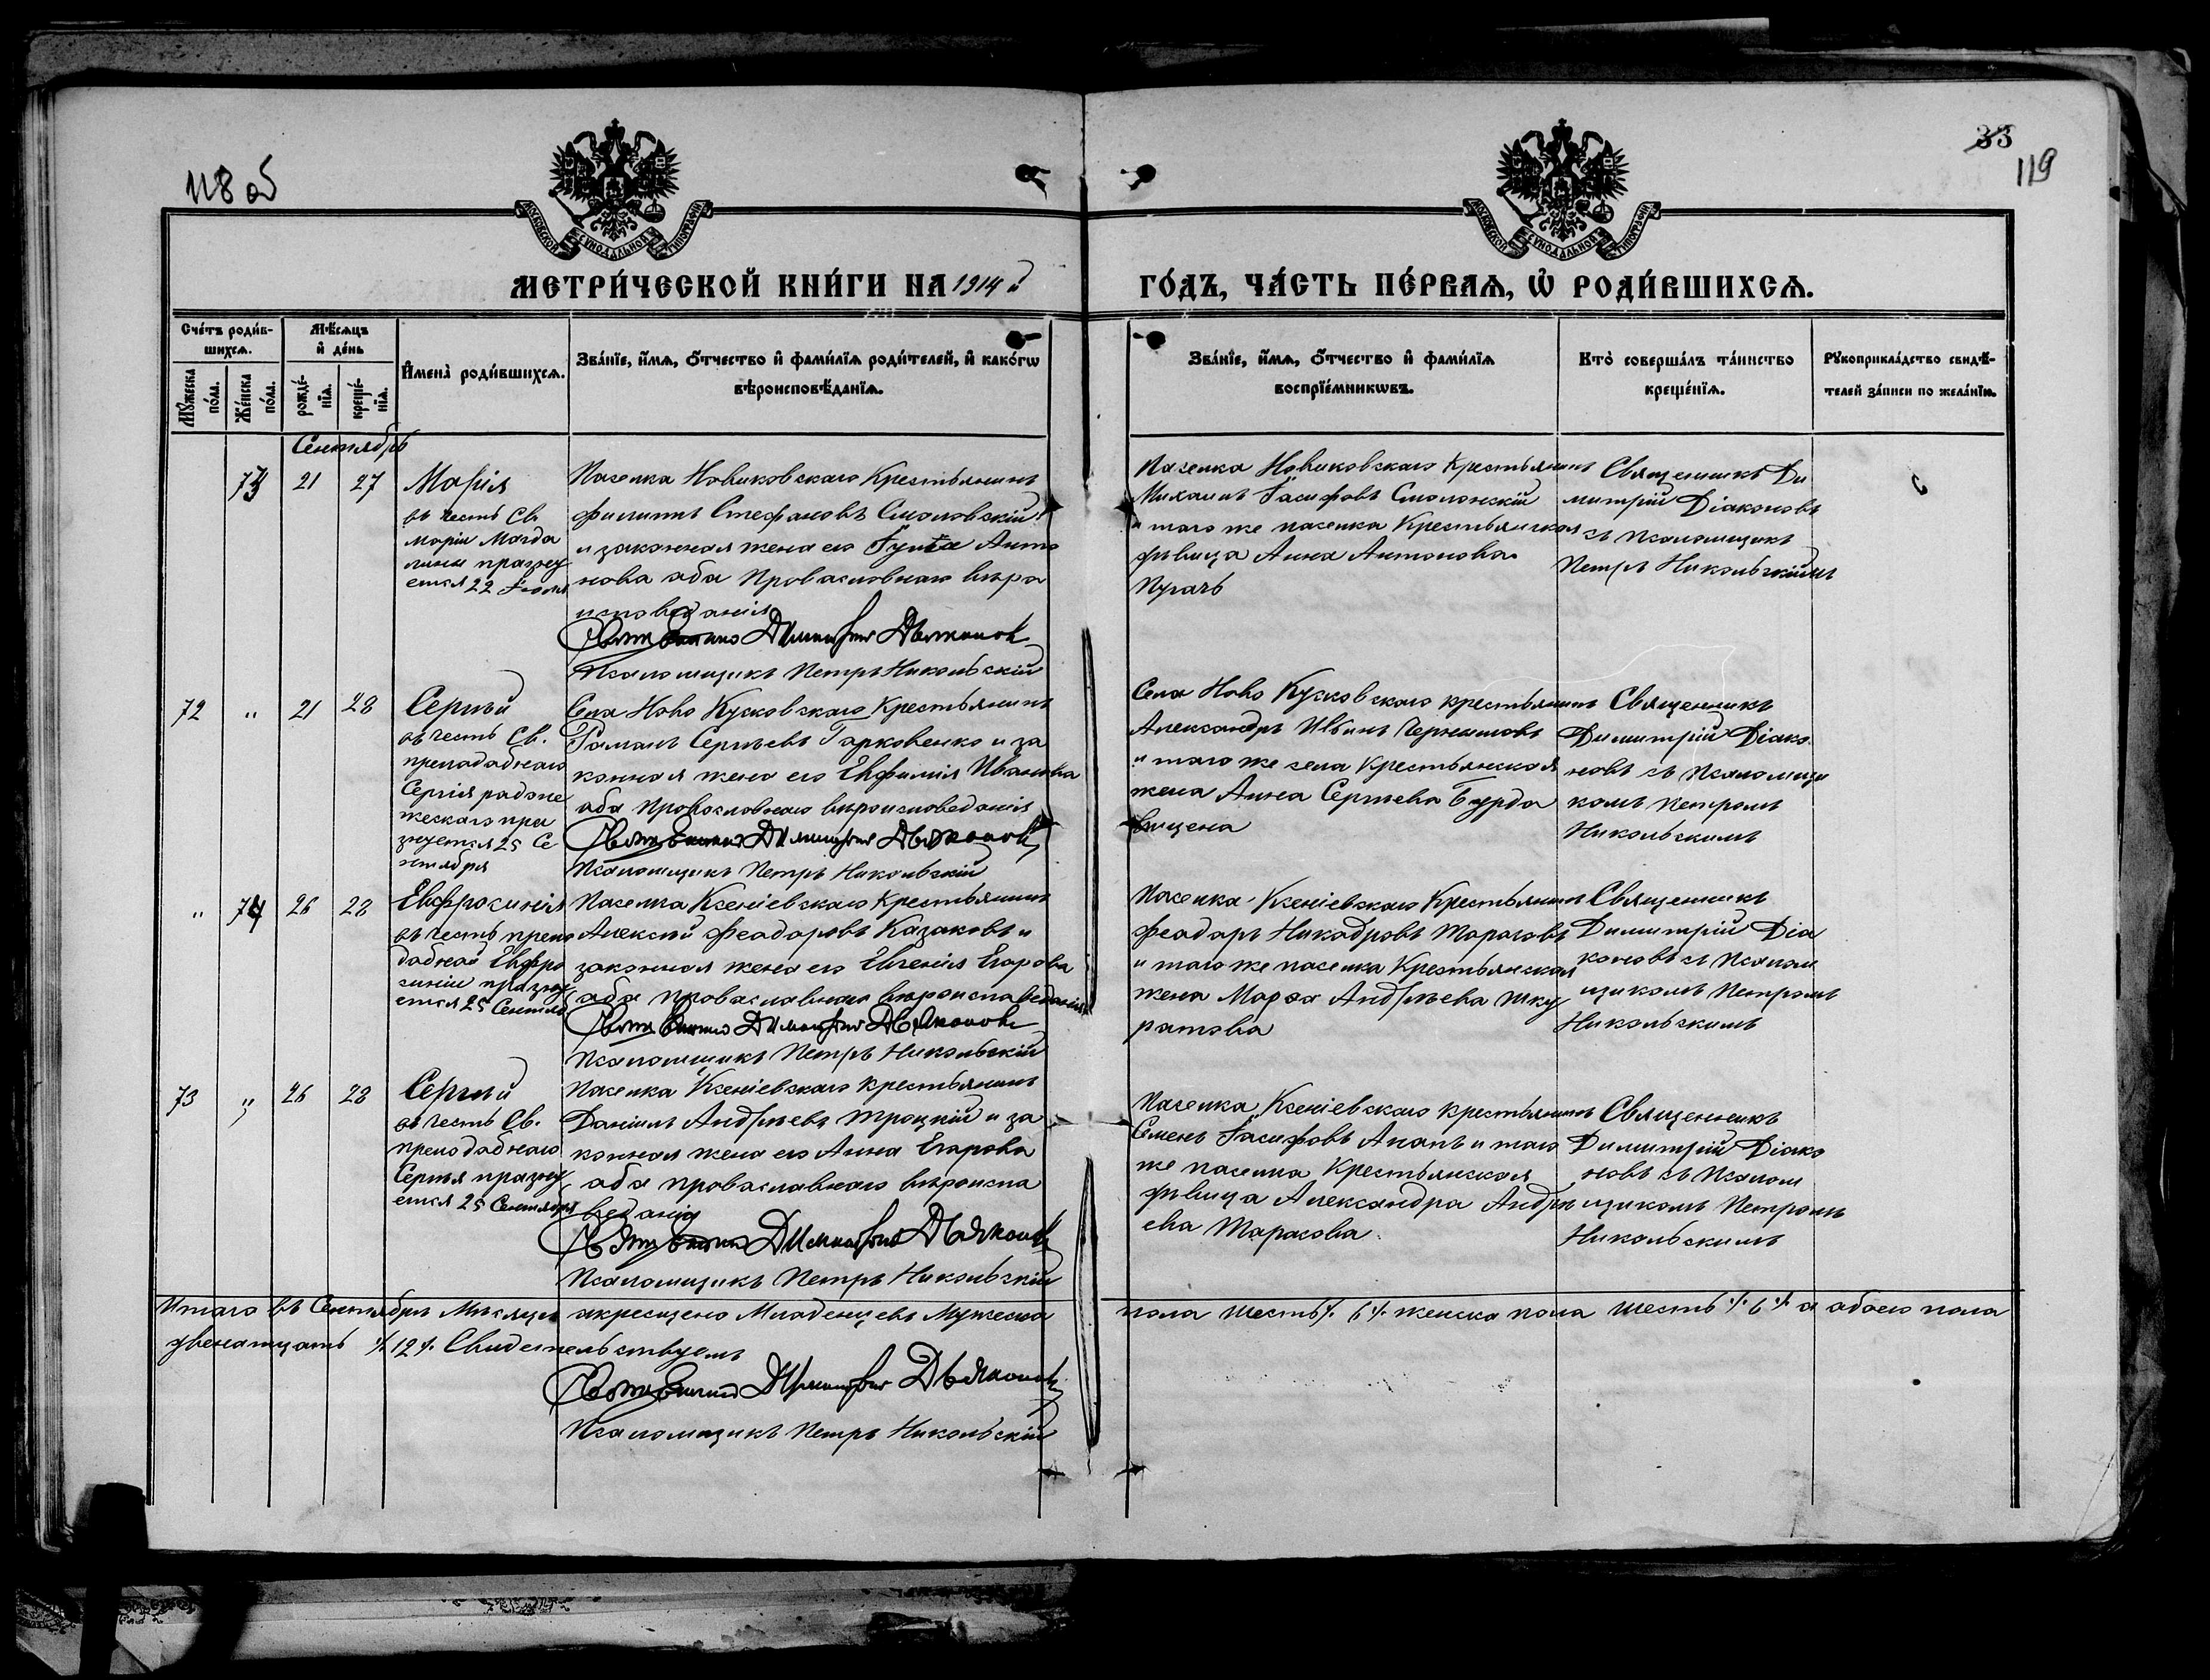 118 об
33
119
МОСКОВСКОЙ СѴНОДАЛЬНОЙ ТИПОГРАФІИ
МОСКОВСКОЙ СѴНОДАЛЬНОЙ ТИПОГРАФІИ
МЕТРИ́ЧЕСКОЙ КНИ́ГИ НА 1914 й
ГО́ДЪ, ЧА́СТЬ ПЕ́РВАѦ, Ѡ҆ РОДИ́ВШИХСѦ.
Сче́тъ роди́в-
шихсѧ.
Мѣ́сѧцъ
и҆ де́нь
Мꙋ́жеска
по́ла.
Же́нска
по́ла.
рожде́-
нїѧ.
креще́-
нїѧ.
И҆мена̀ роди́вшихсѧ.
Зва́нїе, и҆́мѧ, ѻ҆́тчество и҆ фами́лїѧ роди́телей, и҆ како́гѡ
вѣроисповѣ́данїѧ.
Зва́нїе, и҆́мѧ, ѻ҆́тчество и҆ фами́лїѧ
воспрїе́мникѡвъ.
Кто̀ соверша́лъ та́инство
креще́нїѧ.
Рꙋкоприкла́дство свидѣ́-
телей за́писи по жела́нїю.
Сентябрь
73 21 27 Марія
въ честь Св.
Маріи Магда
лины праздну
ется 22 Іюля
Паселка Новиковскаго Крестьянинъ
Филипъ Стефановъ Смоловскій
и законная жена его Гулта Анто
нова аба Православнаго вѣра
исповеданія
Священникъ Димитрій Дьяконов
Псаломщикъ Петръ Никольскій
Паселка Новиковскаго Крестьянинъ
Михаилъ Іасифовъ Смолонскій
и таго же паселка Крестьянская
дѣвица Анна Антонова
Пугачъ
Священникъ Ди
митрій Діаконовъ
съ Псаломщикъ
Петръ Никольскимъ
72 " 21 28 Сергій
въ честь Св.
преподабнаго
Сергія радоне
жескаго пра
зднуется 25 Се
нтября
Села Ново Кусковскаго Крестьянинъ
Романъ Сергѣевъ Гарковенко и за
конная жена его Евфимія Иванова
аба Православнаго вѣроисповеданія
Священникъ Димитрій Дьяконов
Псаломщикъ Петръ Никольскій
Села Ново Кусковскаго крестьянинъ
Александръ Ивинъ Чернышовъ
и таго же села Крестьянская
жена Анна Сергѣева Бурда
вицена
Священникъ
Димитрій Діако
новъ съ Псаломщи
комъ Петромъ
Никольскимъ
" 74 26 28 Евфросинія
въ честь препо
дабнай Евфро
синіи праздну
ется 25 Сентяб
Паселка Ксеніевскаго Крестьянинъ
Алексѣй Феадаровъ Казаковъ и
законная жена его Евгенія Егарова
аба православнаго вѣроисповеданія
Священникъ Димитрій Дьяконов
Псаломщикъ Петръ Никольскій
Паселка Ксеніевскаго Крестьянинъ
Феадаръ Никадровъ Тарасовъ
и таго же паселка Крестьянская
жена Марѳа Андрѣева Шку
ратова
Священникъ
Димитрій Діа
коновъ съ Псалом
щикомъ Петромъ
Никольскимъ
73 " 26 28 Сергій
въ честь Св.
преподабнаго
Сергія праздну
ется 25 Сентября
Паселка Ксеніевскаго крестьянинъ
Даніилъ Андрѣевъ Троцкій и за
конная жена его Анна Егарова
аба православнаго вѣроиспа
веданія
Священникъ Димитрій Дьяконов
Псаломщикъ Петръ Никольскій
Паселка Ксеніевскаго крестьянинъ
Семенъ Іасифовъ Апапъ и таго
же паселка Крестьянская
дѣвица Александра Андрѣ
ева Тарасова.
Священникъ
Димитрій Діако
новъ съ Псалом
щикомъ Петромъ
Никольскимъ
Итаго въ Сентябрѣ Мѣсяцѣ акрещено Младенцевъ Мужеска пола шесть ٪ 6 ٪ женска пола шесть ٪ 6 ٪ а абоего пола
двенатцать ٪ 12 ٪ Свидетельствуемъ
Священникъ Димитрій Дьяконов
Псаломщикъ Петръ Никольскій